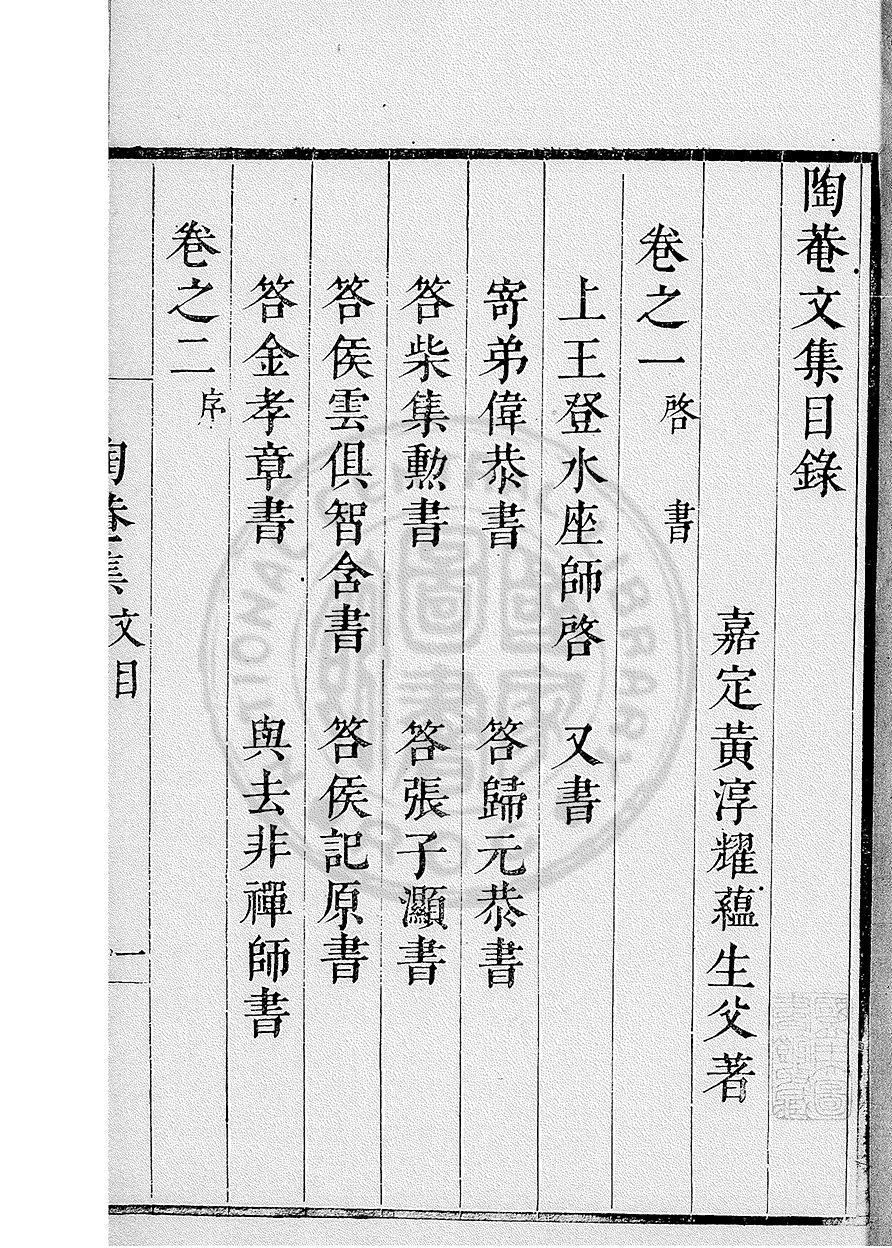 陶菴文集目錄
嘉定黃淳耀蘊生父著
卷之一 啓 書
上王登水座師啓 又書
寄弟偉恭書 答歸元恭書
答柴集勲書 答張子灝書
答侯雲俱智含書 答侯記原書
答金孝章書 與去非禪師書
卷之二 序
陶菴集 文目 一
國家圖書館
NATIONAL CENTRAL LIBRARY